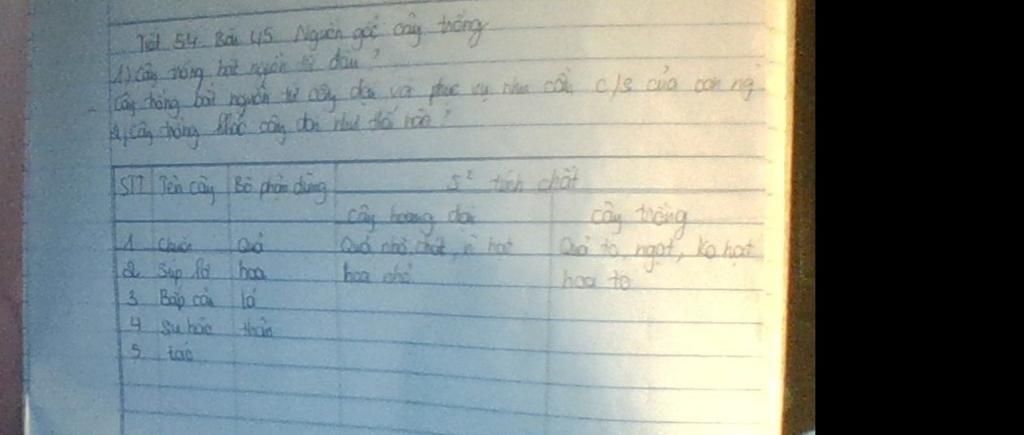 Tiết 54. Bài 45. Nguồn gốc cây trồng
1) Cây trồng bắt nguồn từ đâu?
- Cây trồng bắt nguồn từ cây dại và phục vụ nhu cầu c/s của con ng
2, Cây trồng khác cây dại như thế nào?
STT Tên cây Bộ phận dùng S² tính chất
Cây hoang dại Cây trồng
1 Chuối Quả Quả nhỏ, chát, n hạt Quả to, ngọt, ko hạt
2 Súp lơ hoa hoa nhỏ hoa to
3 Bắp cải lá
4 Su hào thân
5 táo